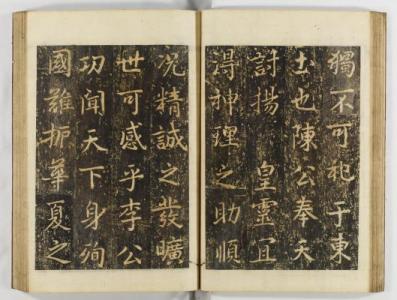 獨不可祀于東
土也陳公奉天
討揚 皇靈宜
得神理之助順
况精誠之發曠
世可感乎李公
功聞天下身殉
國難扞華夏之